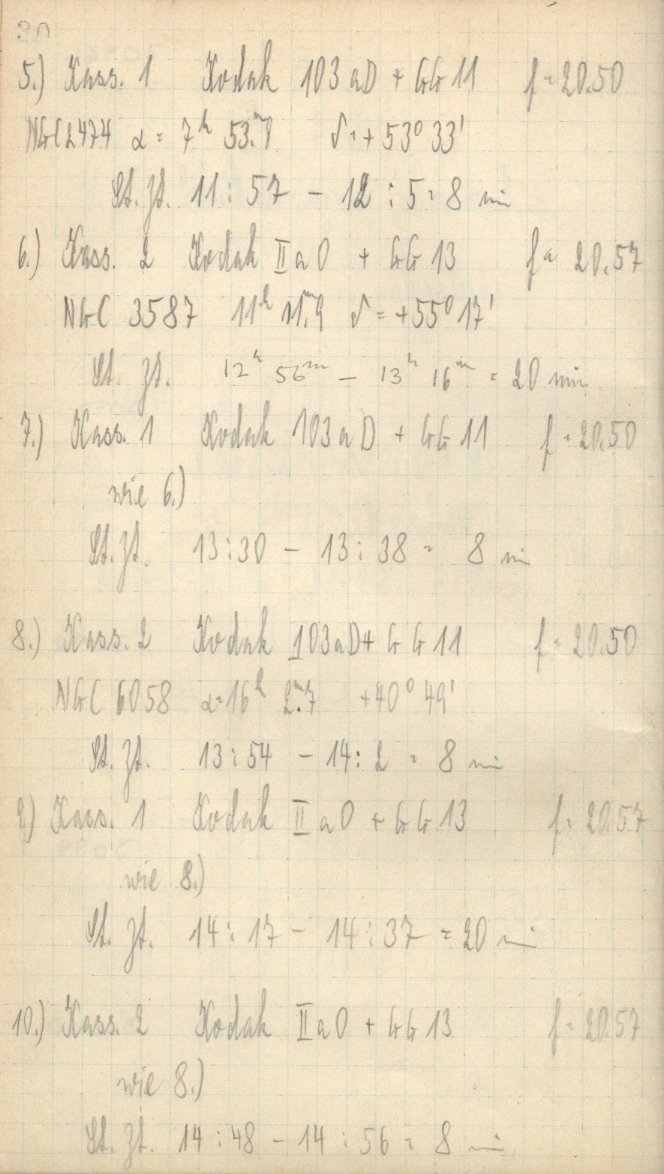 30
5.) Kass. 1 Kodak 103aD + GG 11 f = 20.50
NGC 2474 α = 7ʰ 53.ᵐ9 δ = +53° 33'
St. Zt. 11 : 57 – 12 : 5 = 8 min
6.) Kass. 2 Kodak II a O + GG 13 f = 20.57
NGC 3587 11ʰ 11.ᵐ9 δ = +55° 17'
St. Zt. 12ʰ 56ᵐ – 13ʰ 16ᵐ = 20 min
7.) Kass. 1 Kodak 103 a D + GG 11 f = 20.50
wie 6.)
St. Zt. 13 : 30 – 13 : 38 = 8 min
8.) Kass. 2 Kodak 103aD + GG 11 f = 20.50
NGC 6058 α = 16ʰ 2.ᵐ7 +40° 49'
St. Zt. 13 : 54 – 14 : 2 = 8 min
9.) Kass. 1 Kodak II a O + GG 13 f = 20.57
wie 8.)
St. Zt. 14 : 17 – 14 : 37 = 20 min
10.) Kass. 2 Kodak II a O + GG 13 f = 20.57
wie 8.)
St. Zt. 14 : 48 – 14 : 56 = 8 min